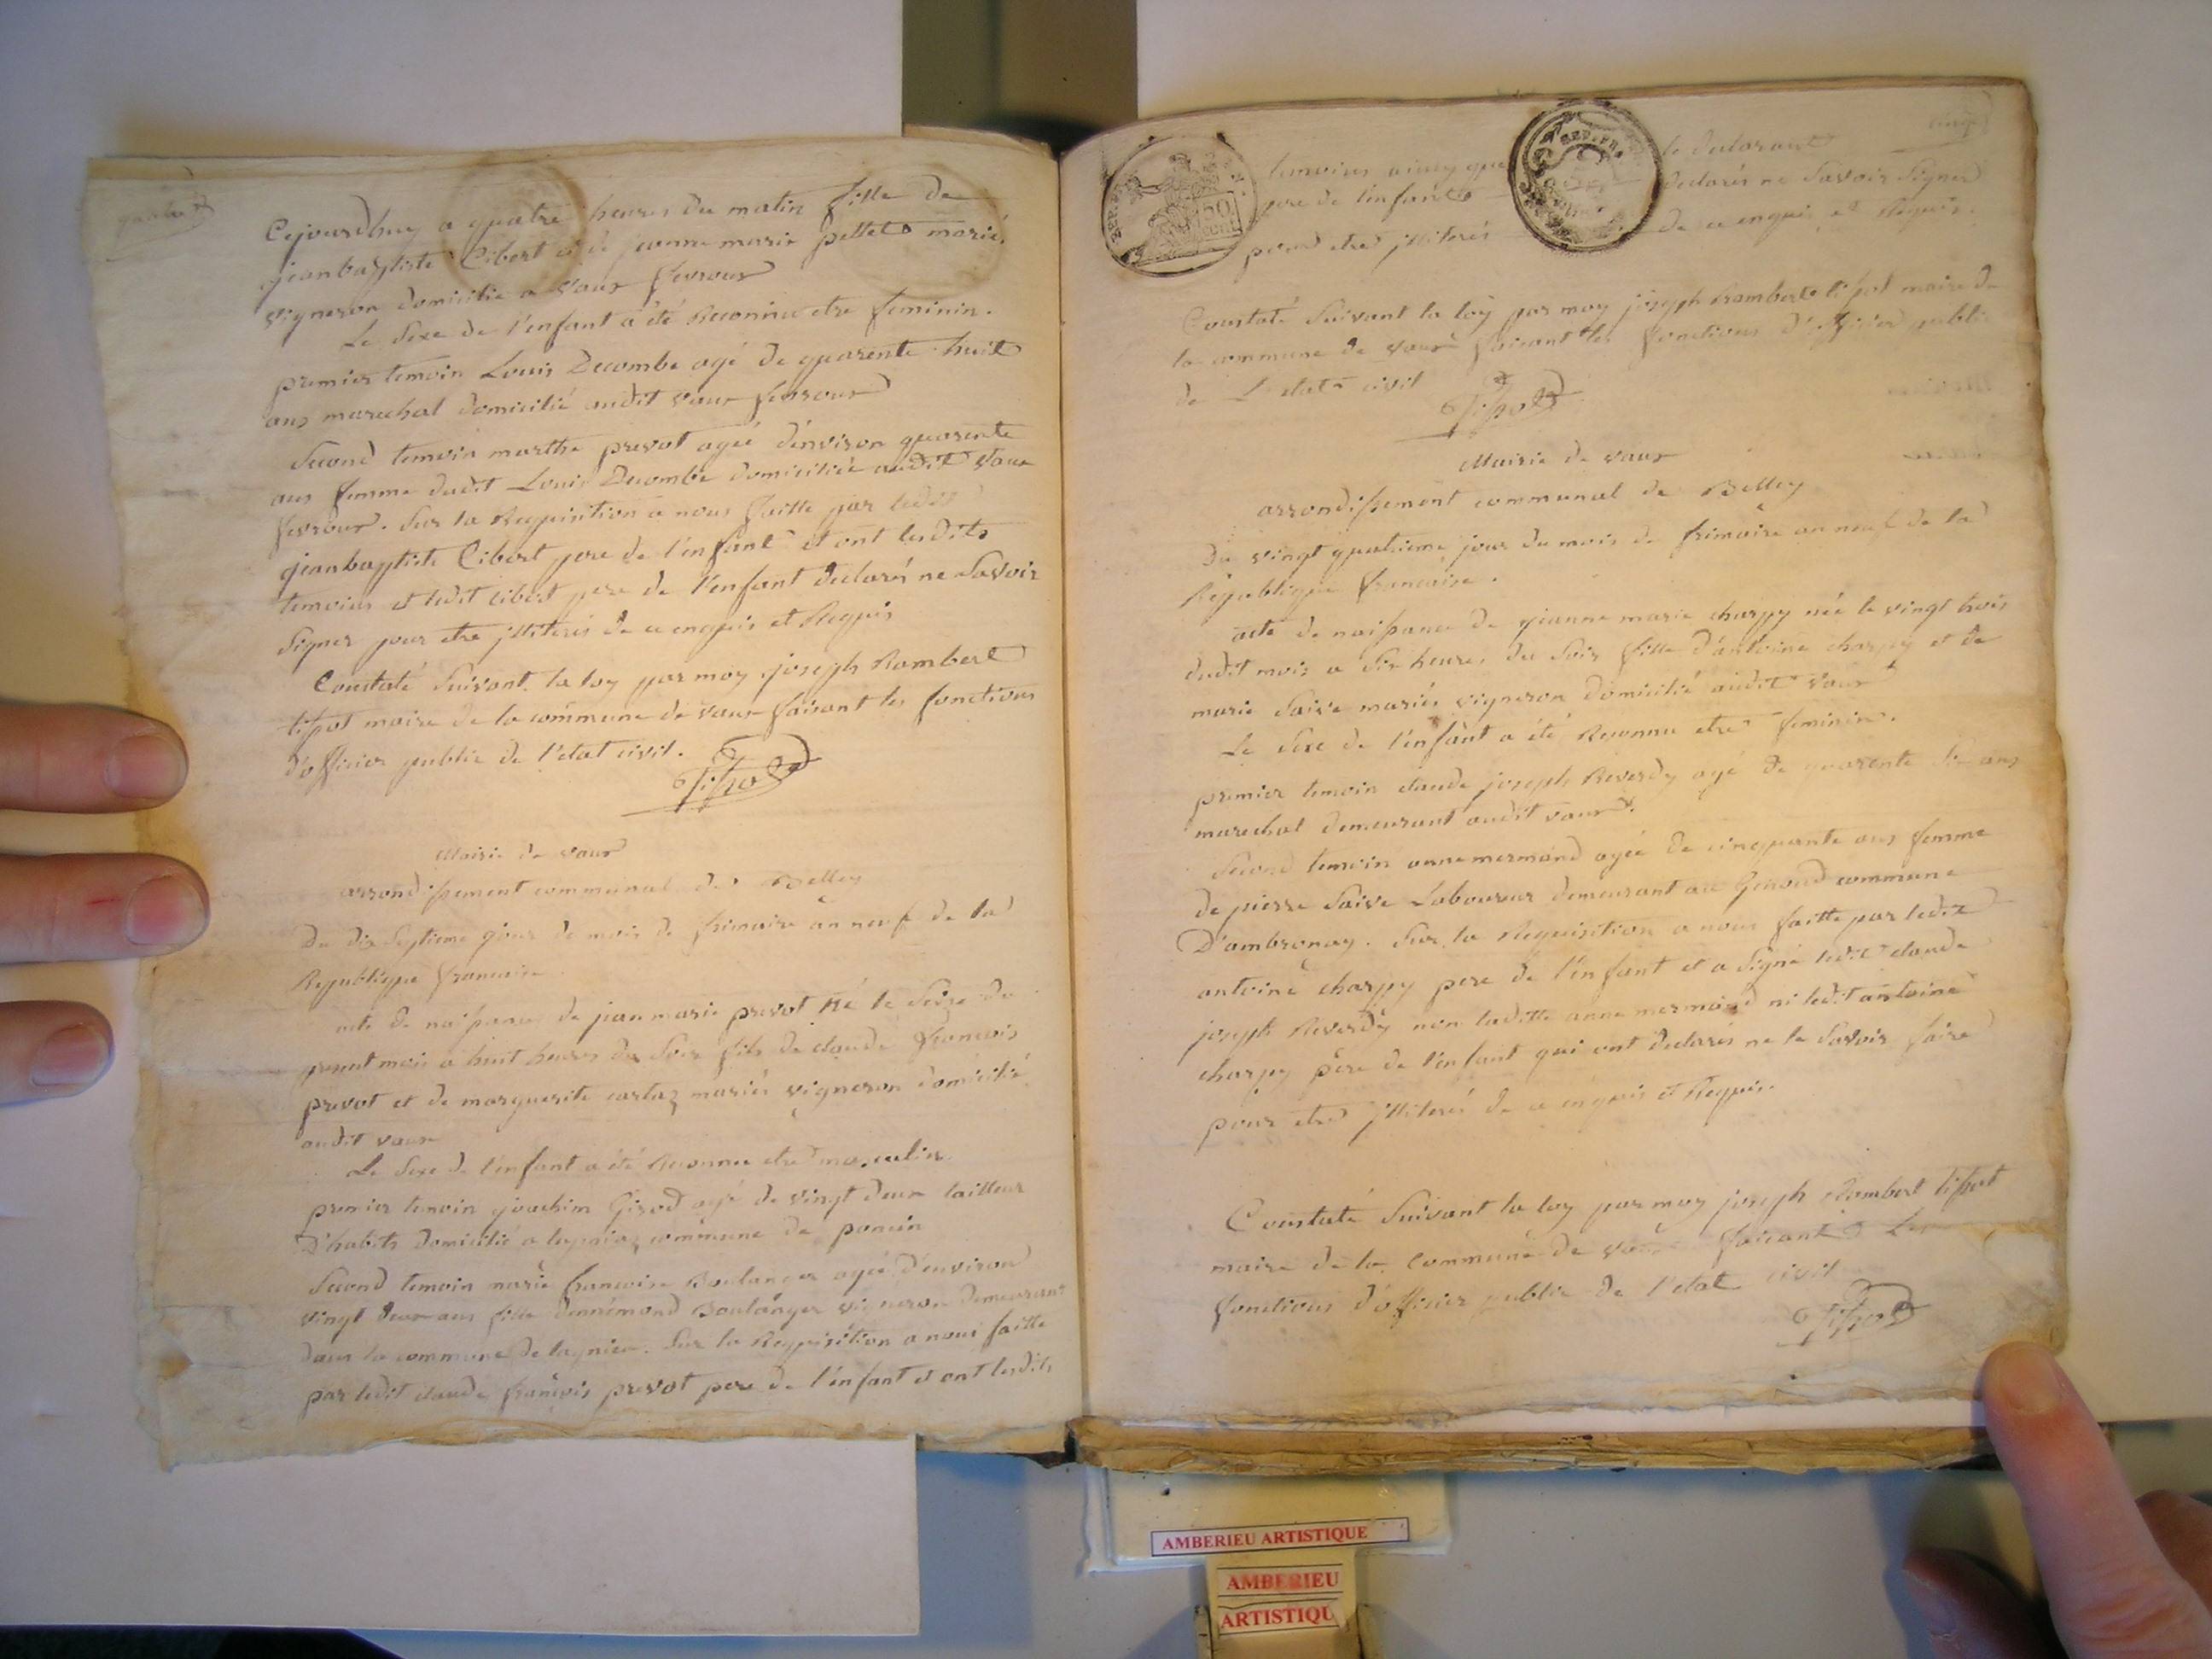 Cejourdhuy a quatre heures du matin fille de
jeanbaptiste Cibert et de jeanne marie pellet mariés
vigneron domicilié a vaux fevroux
Le Sexe de l'enfant a été Reconnu etre feminin.
premier temoin Louis Decombe agé de quarente huit
ans marechal domicilié audit vaux fevroux
Second temoin marthe prevot agée d'environ quarente
ans femme dudit Louis Decombe domiciliée audit vaux
fevroux. Sur la Requisition a nous faitte par ledit
jeanbaptiste Cibert pere de l'enfant et ont lesdits
temoins et ledit Cibert pere de l'enfant declarés ne Savoir
Signer pour etre jlliterés de ce enquis et Requis
Constaté Suivant la loy par moy joseph Rambert
tissot maire de la commune de vaux faisant les fonctions
d'officier public de l'etat civil.
Tissot
Mairie de vaux
arrondissement communal de Belley
Du dix Septieme jour du mois de frimaire an neuf de la
Republique francaise.
acte de naissance de jean marie prevot né le Seize du
present mois a huit heures du Soir fils de claude francois
prevot et de marguerite cartaz mariés vigneron domicilié
audit vaux
Le Sexe de l'enfant a été Reconnu etre masculin.
premier temoin joachim Girod agé de vingt deux tailleur
D'habits domicilié a commune de poncin
Second temoin marie francoise Boulanger agée d'environ
vingt deux ans fille dennemond Boulanger vigneron demeurant
dans la commune de lagnieu. Sur la Requisition a nous faitte
par ledit claude francois prevot pere de l'enfant et ont lesdits
temoins ainsy que le declarant
pere de l'enfant declarés ne Savoir Signer
pour etre jlliterés de ce enquis et Requis.
REP. FRA.
50 cent.
REP. FRA.
Constaté Suivant la loy par moy joseph Rambert tissot maire de
la commune de vaux faisant les fonctions d'officier public
de L'etat civil
Tissot
Mairie de vaux
arrondissement communal de Belley
Du vingt quatrieme jour du mois de frimaire an neuf de la
Republique francaise.
acte de naissance de jeanne marie charpy née le vingt trois
dudit mois a Six heures du Soir fille d'antoine charpy et de
marie Saive mariés vigneron domicilié audit vaux
Le Sexe de l'enfant a été Reconnu etre feminin.
premier temoin claude joseph Reverdy agé de quarente Six ans
marechal demeurant audit vaux.
Second temoin anne mermand agée de cinquante ans femme
de pierre Saive Laboureur demeurant au Genoud commune
D'ambronay. Sur la Requisition a nous faitte par ledit
antoine charpy pere de l'enfant et a Signé ledit claude
joseph Reverdy non laditte anne mermand ni ledit antoine
charpy père de l'enfant qui ont declarés ne le Savoir faire
pour etre jlliterés de ce enquis et Requis.
Constaté Suivant la loy par moy joseph Rambert tissot
maire de la Commune de vaux faisant Les
fonctions d'officier public de l'etat civil
Tissot
AMBERIEU ARTISTIQUE
AMBERIEU
ARTISTIQU